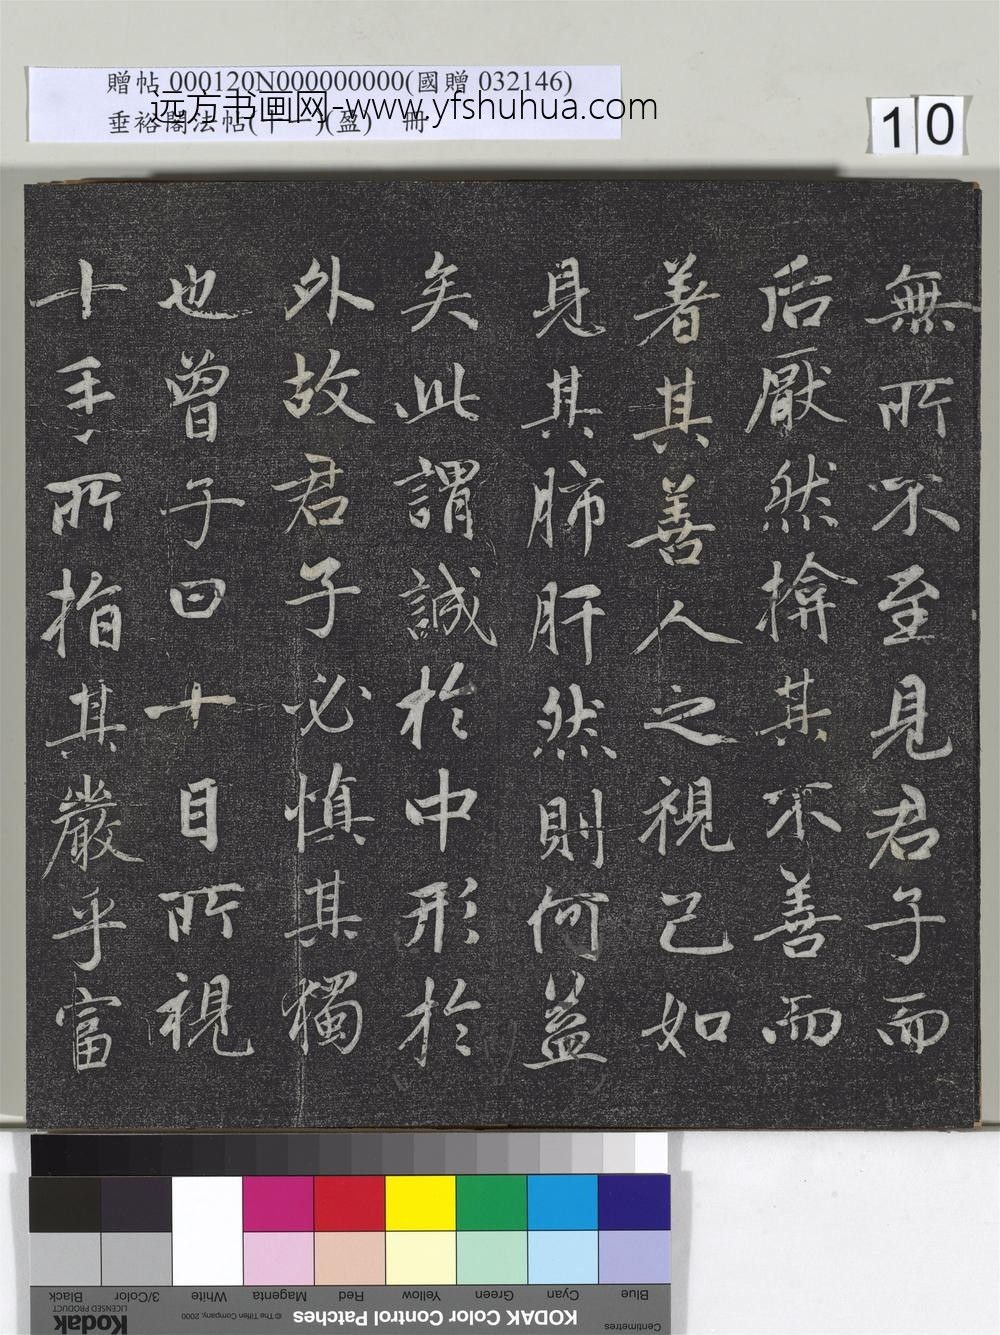 贈帖 000120N000000000(國贈 032146)
远方书画网-www.yfshuhua.com
垂裕閣法帖(十一)(盈) 冊
10
無所不至見君子而
后厭然揜其不善而
著其善人之視己如
見其肺肝然則何益
矣此謂誠於中形於
外故君子必慎其獨
也曾子曰十目所視
十手所指其嚴乎富
Blue Cyan Green Yellow Red Magenta White 3/Color Black
KODAK Color Control Patches
© The Tiffen Company, 2000
Kodak
LICENSED PRODUCT
Centimetres